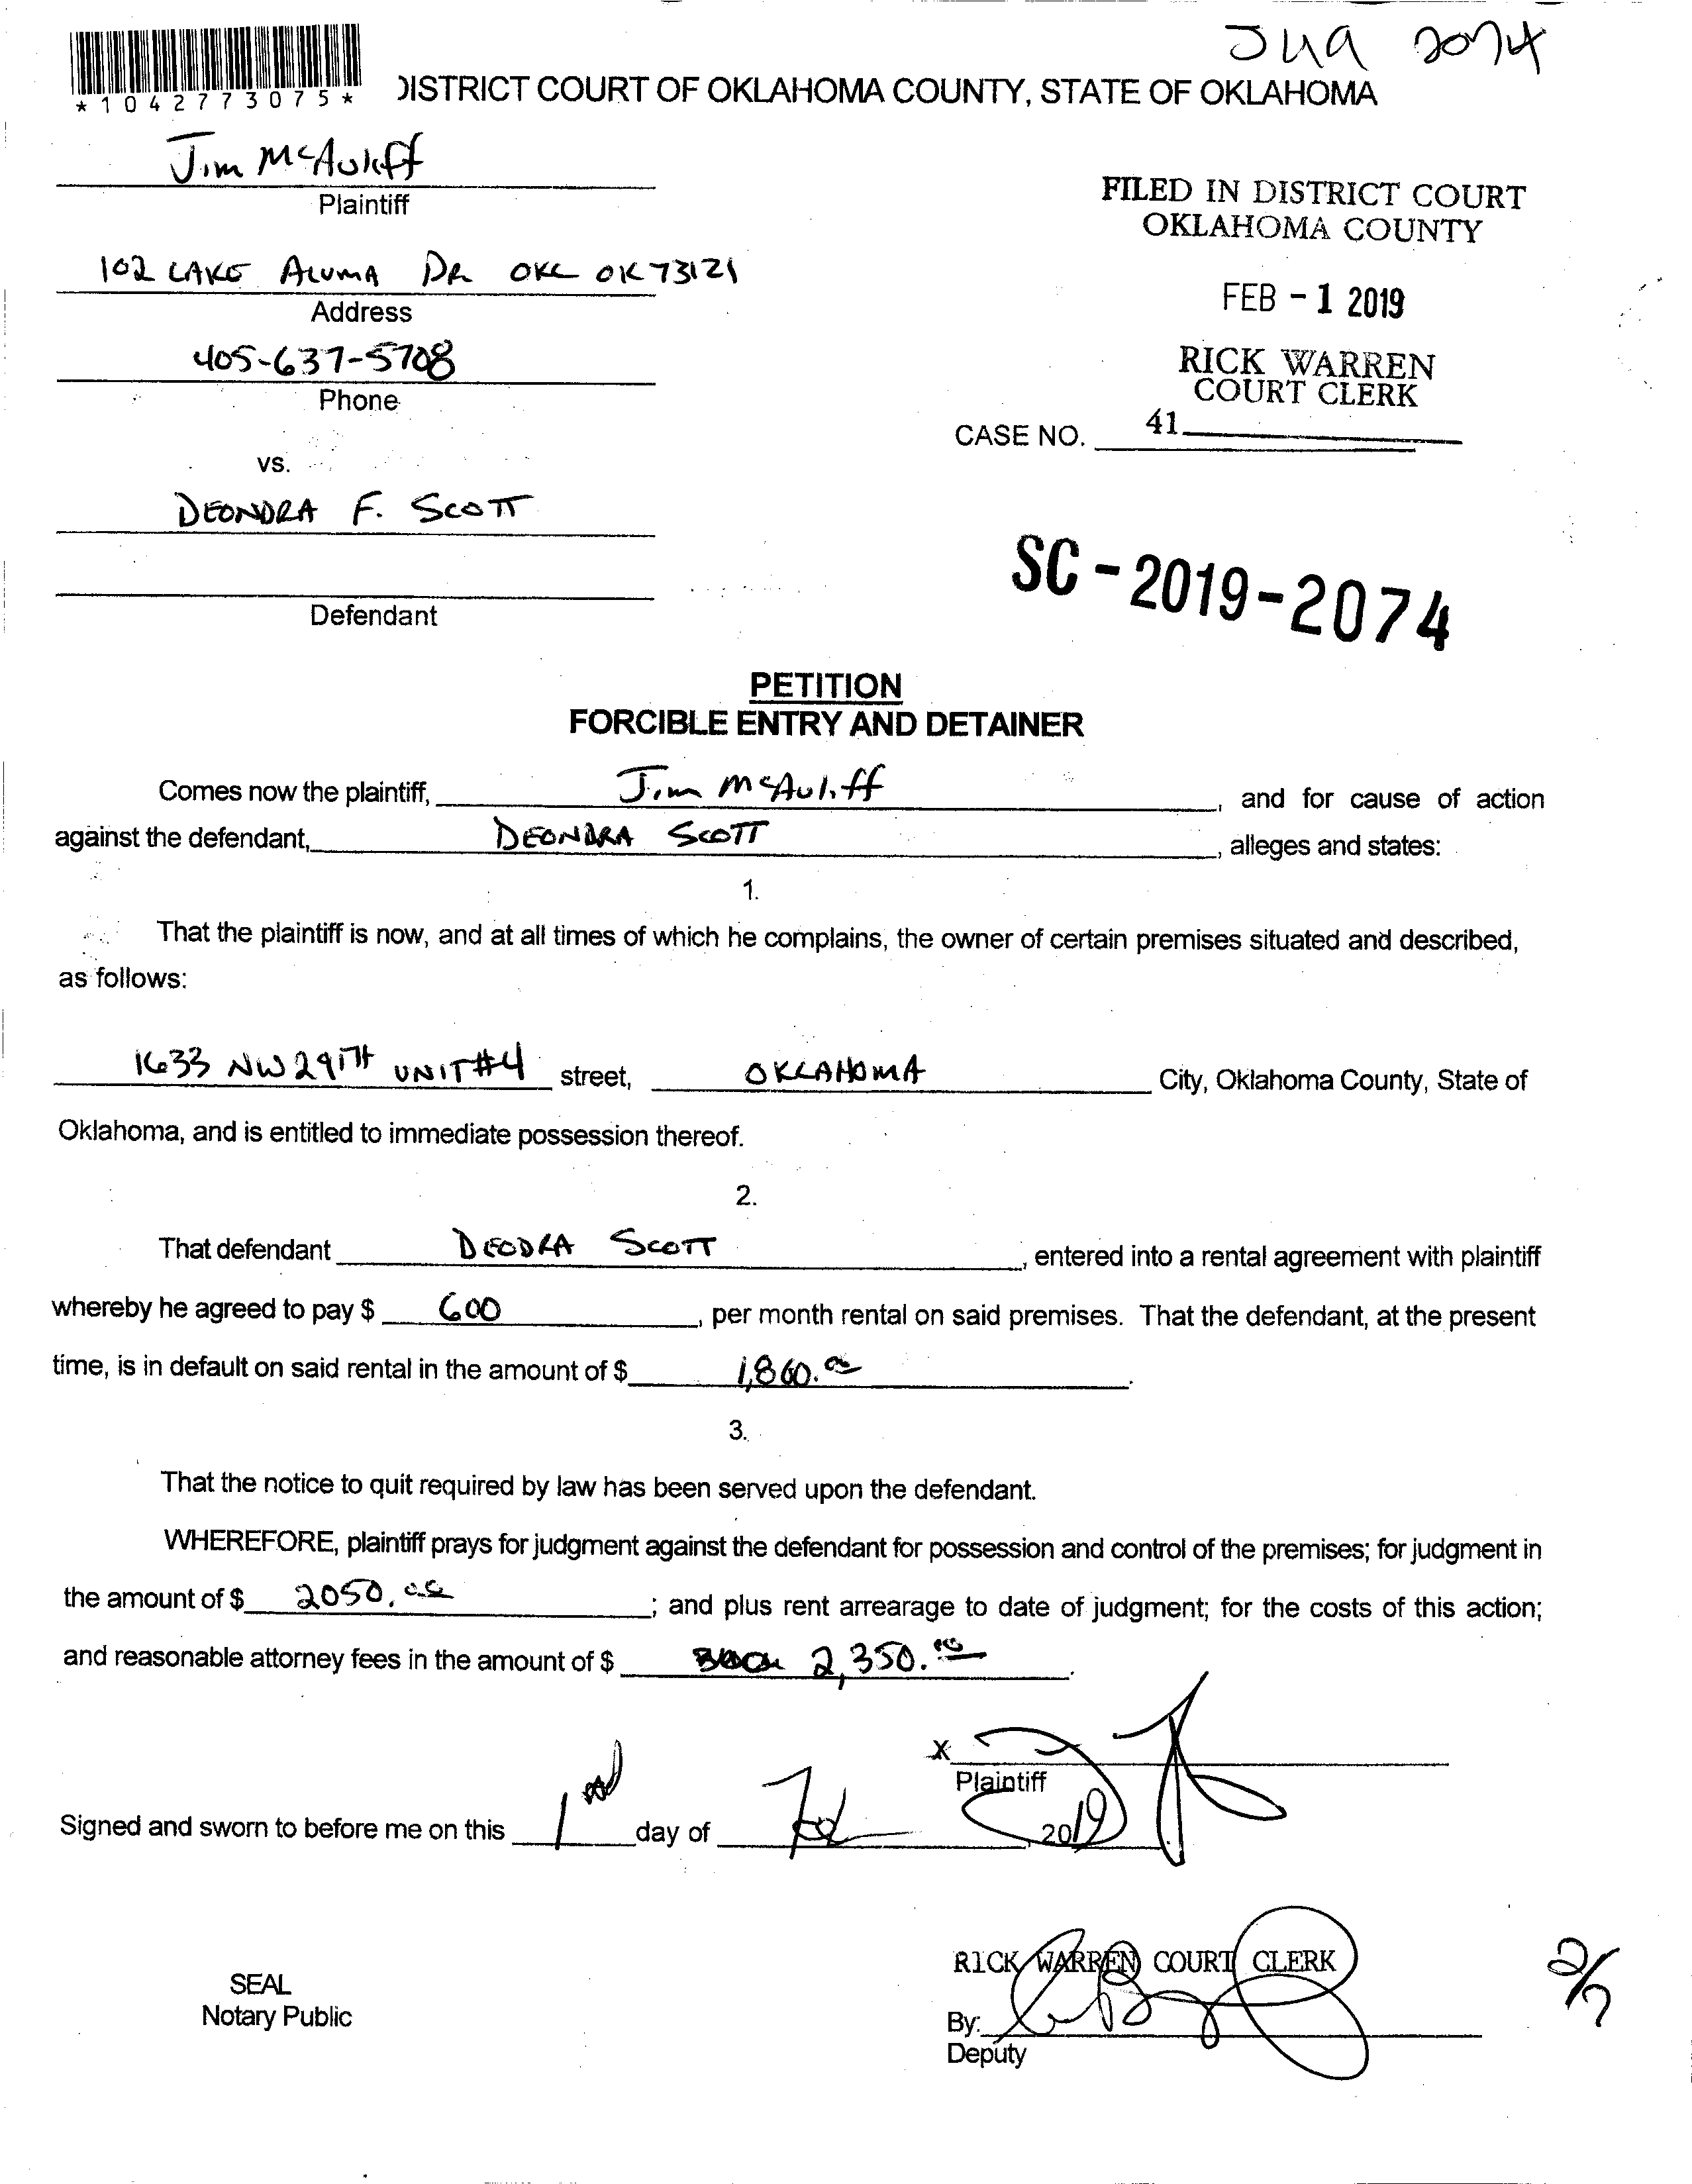 Jug 2074
*1042773075*
DISTRICT COURT OF OKLAHOMA COUNTY, STATE OF OKLAHOMA
Jim McAuliff
Plaintiff
FILED IN DISTRICT COURT
OKLAHOMA COUNTY
102 LAKE ALUMA DR OKC OK 73121
Address
FEB - 1 2019
405-637-5708
Phone
RICK WARREN
COURT CLERK
CASE NO. 41
vs.
DEONDRA F. SCOTT
Defendant
SC-2019-2074
PETITION
FORCIBLE ENTRY AND DETAINER
Comes now the plaintiff, Jim McAuliff, and for cause of action
against the defendant, DEONDRA SCOTT, alleges and states:
1.
That the plaintiff is now, and at all times of which he complains, the owner of certain premises situated and described,
as follows:
1633 NW 29TH UNIT #4 street, OKLAHOMA City, Oklahoma County, State of
Oklahoma, and is entitled to immediate possession thereof.
2.
That defendant DEODRA SCOTT, entered into a rental agreement with plaintiff
whereby he agreed to pay $ 600, per month rental on said premises. That the defendant, at the present
time, is in default on said rental in the amount of $ 1,860.00.
3.
That the notice to quit required by law has been served upon the defendant.
WHEREFORE, plaintiff prays for judgment against the defendant for possession and control of the premises; for judgment in
the amount of $ 2050.00; and plus rent arrearage to date of judgment; for the costs of this action;
and reasonable attorney fees in the amount of $ 2,350.00.
X
Plaintiff
Signed and sworn to before me on this 1 day of Feb, 2019
RICK WARREN COURT CLERK
SEAL
Notary Public
By:
Deputy
2/7